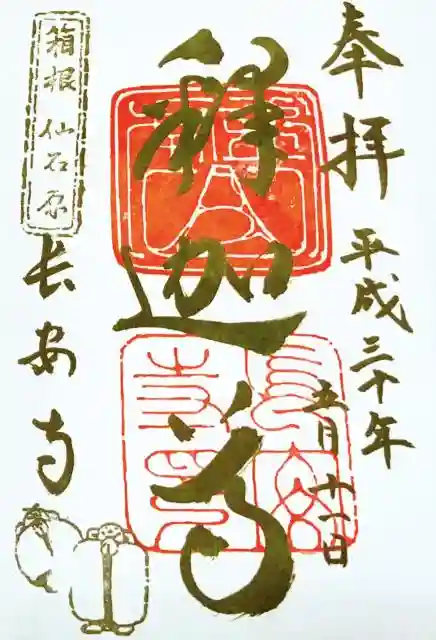 奉拝
平成三十年
五月十一日
釋迦尊
箱根仙石原
長安寺